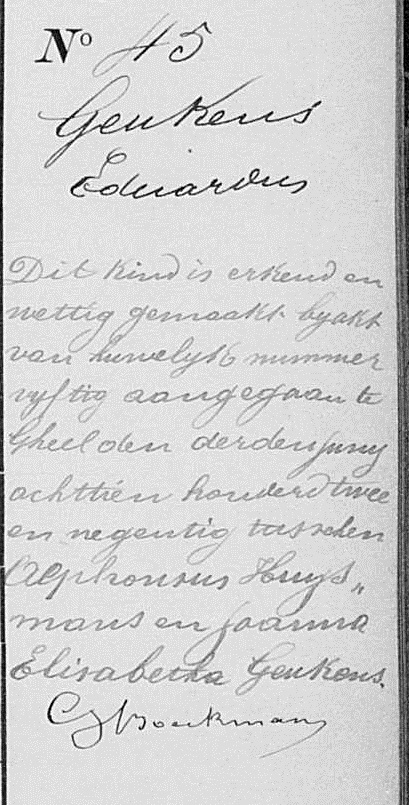 Nº 45
Geukens
Eduardus
Dit kind is erkend en
wettig gemaakt by akt
van huwelyk nummer
vyftig aangegaan te
Gheel den derden juny
achttien honderd twee
en negentig tusschen
Alphonsus Huys„
mans en Joanna
Elisabetha Geukens.